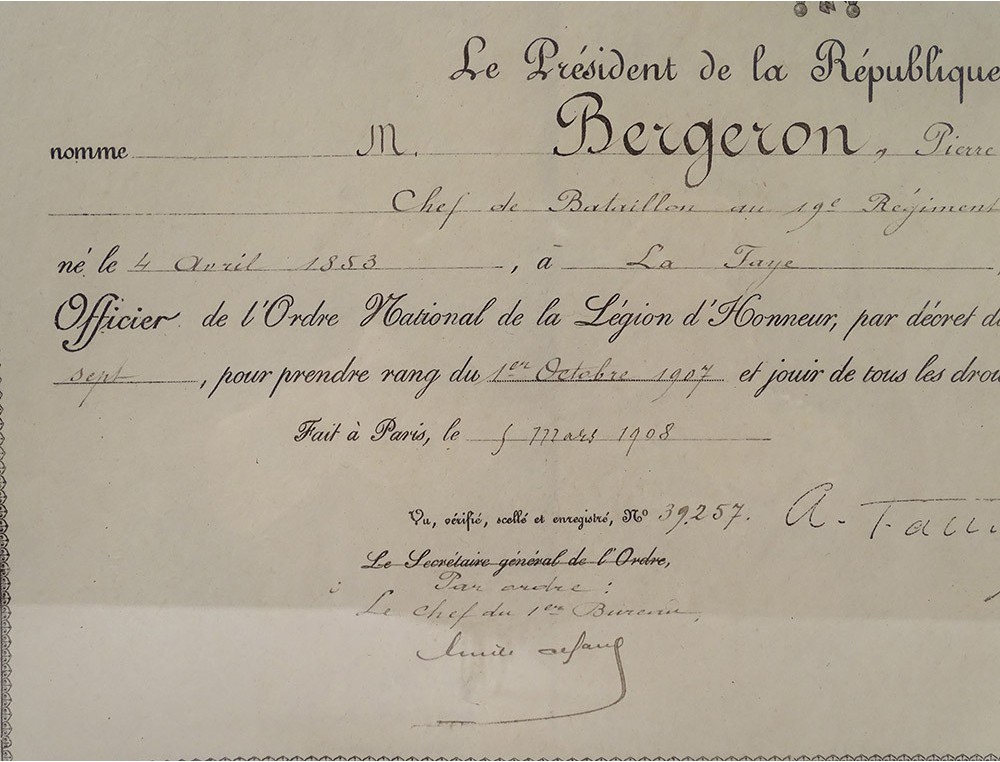 Le Président de la République
nomme M. Bergeron, Pierre
Chef de Bataillon au 19e Régiment
né le 4 Avril 1853, à La Faye
Officier de l'Ordre National de la Légion d'Honneur, par décret
sept, pour prendre rang du 1er Octobre 1907 et jouir de tous les
Fait à Paris, le 5 Mars 1908
Vu, vérifié, scellé et enregistré, No 39,257.
A.
Le Secrétaire général de l'Ordre,
Par ordre :
Le Chef du 1er Bureau,